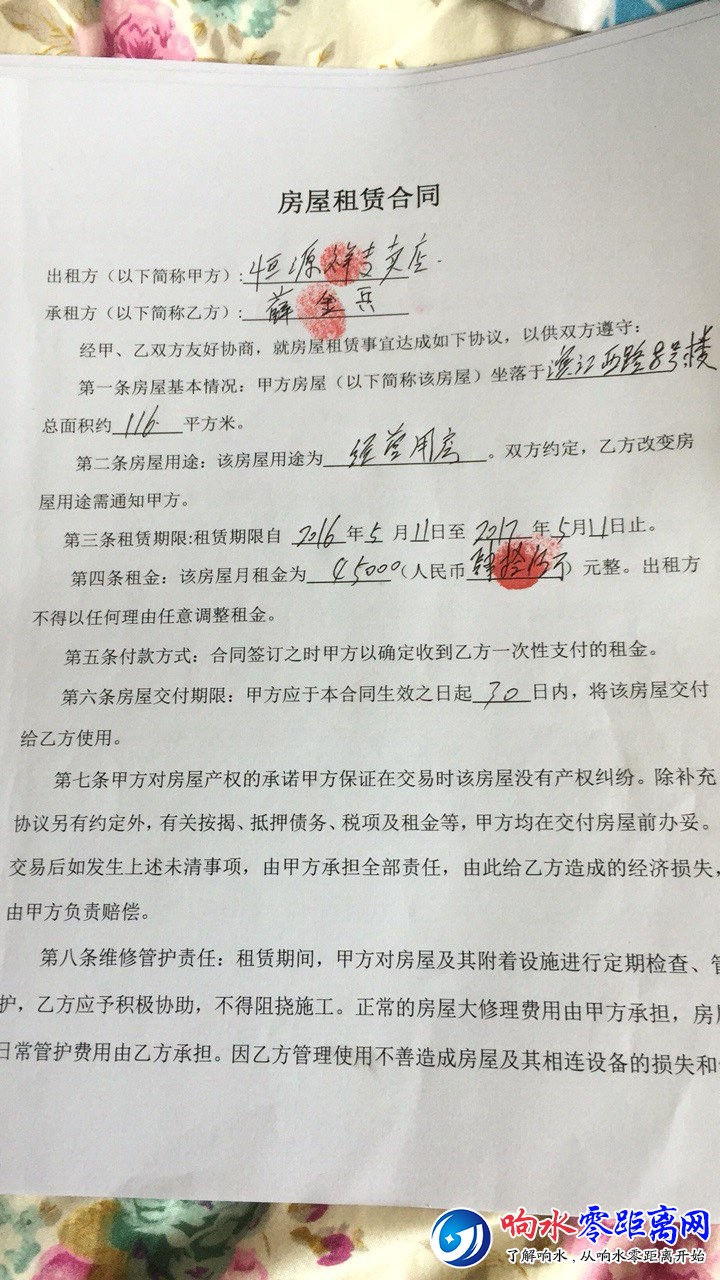 房屋租赁合同
出租方（以下简称甲方）:恒源祥专卖店.
承租方（以下简称乙方）:薛金兵
经甲、乙双方友好协商，就房屋租赁事宜达成如下协议，以供双方遵守：
第一条房屋基本情况：甲方房屋（以下简称该房屋）坐落于滨江西路8号楼
总面积约116平方米。
第二条房屋用途：该房屋用途为经营用店。双方约定，乙方改变房
屋用途需通知甲方。
第三条租赁期限:租赁期限自2016年5月11日至2017年5月11日止。
第四条租金：该房屋月租金为45000(人民币肆拾伍万）元整。出租方
不得以任何理由任意调整租金。
第五条付款方式：合同签订之时甲方以确定收到乙方一次性支付的租金。
第六条房屋交付期限：甲方应于本合同生效之日起30日内，将该房屋交付
给乙方使用。
第七条甲方对房屋产权的承诺甲方保证在交易时该房屋没有产权纠纷。除补充
协议另有约定外，有关按揭、抵押债务、税项及租金等，甲方均在交付房屋前办妥。
交易后如发生上述未清事项，由甲方承担全部责任，由此给乙方造成的经济损失，
由甲方负责赔偿。
第八条维修管护责任：租赁期间，甲方对房屋及其附着设施进行定期检查、管
护，乙方应予积极协助，不得阻挠施工。正常的房屋大修理费用由甲方承担，房
日常管护费用由乙方承担。因乙方管理使用不善造成房屋及其相连设备的损失和
响水零距离网
了解响水，从响水零距离开始